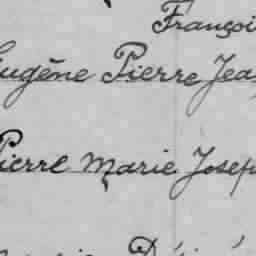 Françoi
Eugène Pierre Jea
Pierre Marie Josep